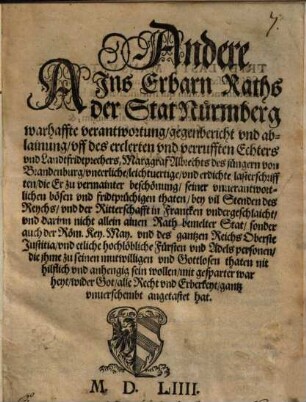 7.
Andere
Ains Erbarn Raths
der Stat Nürmberg
warhaffte verantwortung/ gegenbericht vnd ab-
lainung/ vff des erclerten vnd verrufften Echters
vnd Landtfridprechers, Marggraf Albrechts des jüngern von
Brandenburg/ vnterliche/ leichtuertige/ vnd erdichte lasterschriff
ten/ die Er zu vermainter beschönung/ seiner vnuerantwort-
lichen bösen vnd fridprüchigen thaten/ bey vil Stenden des
Reychs/ vnd der Ritterschafft in Francken vndergeschlaicht/
vnd darinn nicht allein ainen Rath bemelter Stat/ sonder
auch der Röm. Key. May. vnd des gantzen Reichs Oberste
Justitia/ vnd etliche hochlöbliche Fürsten vnd Adels personen/
die jhme zu seinen mutwilligen vnd Gottlosen thaten nit
hilflich vnd anhengig sein wollen/ mit gesparter war
heyt/ wider Got/ alle Recht vnd Erberkeyt/ gantz
vnuerscheubt angetastet hat.
M. D. LIIII.